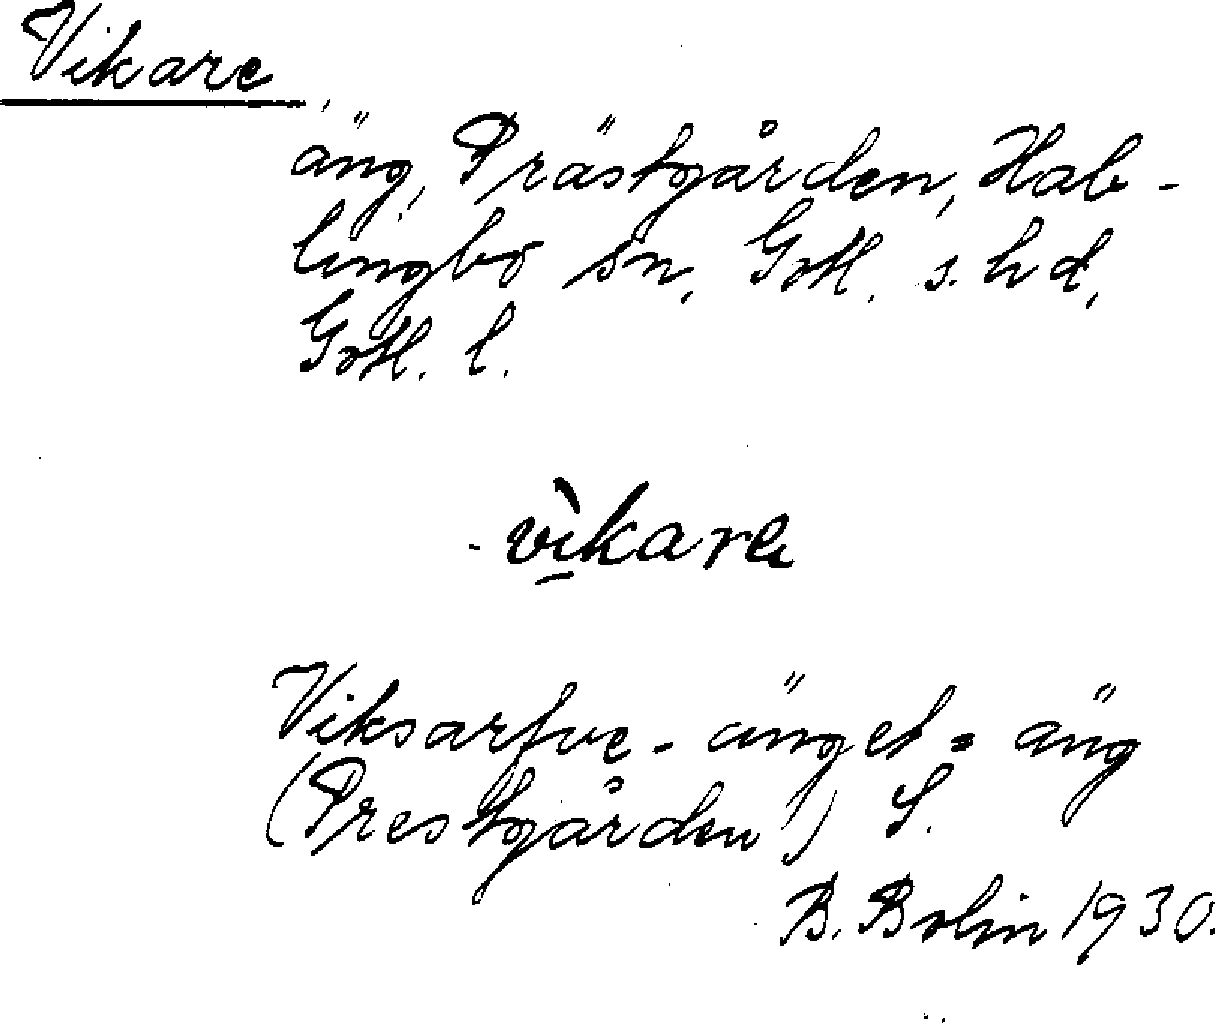 Vikare
äng, Prästgården, Hab-
lingbo sn, Gotl. s. hd,
Gotl. l.
vìkare
Viksarfve-änget = äng
(Prestgården) S.
B. Bolin 1930.